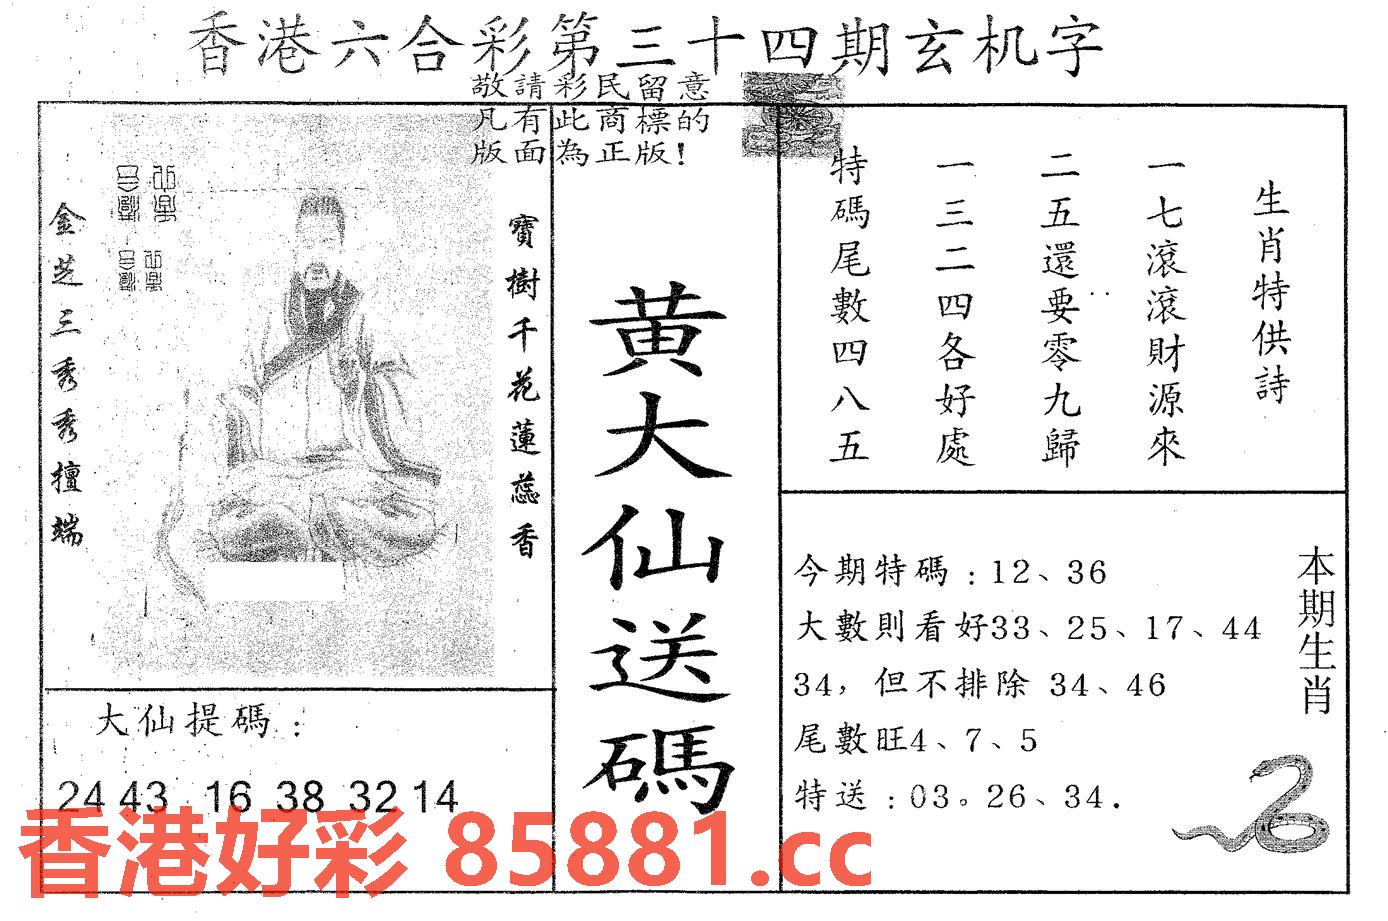 香港六合彩第三十四期玄机字
敬請彩民留意
凡有此商標的
版面為正版!
寶樹千花蓮蕊香
金芝三秀秀擅端
黃大仙送碼
生肖特供詩
一七滾滾財源來
二五還要零九歸
一三二四各好處
特碼尾數四八五
今期特碼:12、36
大數則看好33、25、17、44
34，但不排除 34、46
尾數旺4、7、5
特送:03。26、34.
本期生肖
大仙提碼:
24 43 16 38 32 14
香港好彩 85881.cc